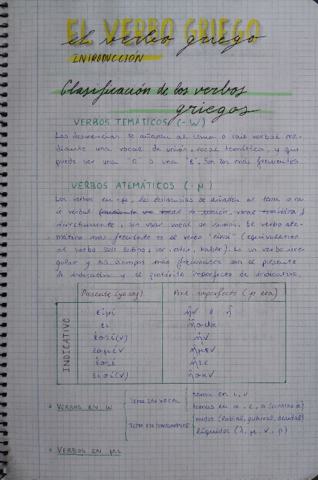 EL VERBO GRIEGO
el verbo griego
INTRODUCCIÓN
Clasificación de los verbos
griegos
VERBOS TEMÁTICOS (-W)
Las desinencias se añaden al tema o raíz verbal me-
diante una vocal de unión, vocal temática, y que
puede ser una "o" o una "ε". Son los más frecuentes.
VERBOS ATEMÁTICOS (-μ)
Los verbos en -μι, las desinencias se añaden al tema o raí-
z verbal
directamente, sin vocal de unión. El verbo ate-
mático más frecuente es el verbo "εἰμί" (equivalente
al verbo ser latino; ser, estar, haber). Es un verbo irre-
gular y sus tiempos más frecuentes son el presente
de indicativo y el pretérito imperfecto de indicativo.
INDICATIVO
Presente (yo soy)
Pret. imperfecto (yo era)
εἰμί
ἦν o ἦ
εἶ
ἦσθα
ἐστί(ν)
ἦν
ἐσμέν
ἦμεν
ἐστέ
ἦτε
εἰσί(ν)
ἦσαν
VERBOS EN W
TEMA EN VOCAL
temas en ι, υ
temas en α, ε, ο
TEMA EN CONSONANTE
mudas (labial, gutural, dental)
líquidas (λ, μ, ν, ρ)
VERBOS EN μι